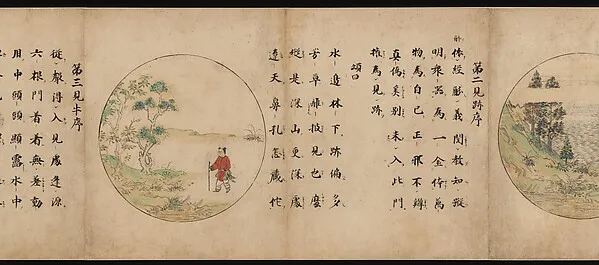 第二見跡序
依經解義閱教知蹤
明衆器為一金体萬
物為自己正邪不辨
真偽奚別未入此門
權為見跡
頌曰
水邊林下跡偏多
芳草離披見也麼
縱是深山更深處
遼天鼻孔怎藏他
第三見牛序
從聲得入見處逢源
六根門着着無差動
用中頭頭顯露水中